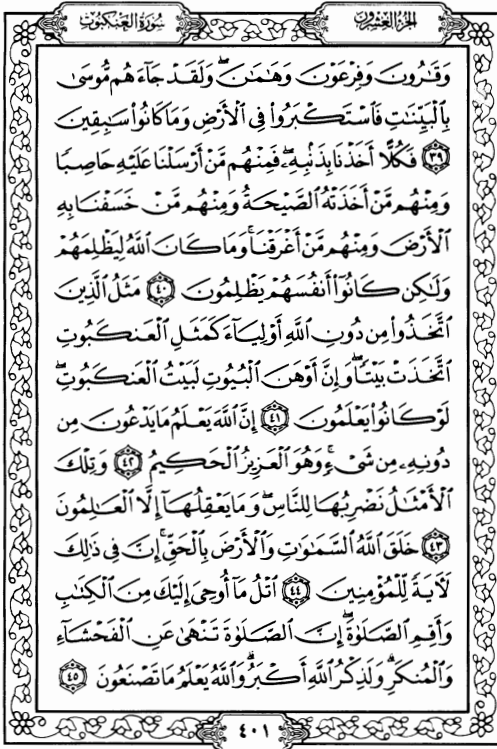 سُورَةُ العَنكَبُوتِ
الجُزْءُ العِشْرُونَ
وَقَٰرُونَ وَفِرْعَوْنَ وَهَٰمَٰنَۖ وَلَقَدْ جَآءَهُم مُّوسَىٰ
بِٱلْبَيِّنَٰتِ فَٱسْتَكْبَرُوا۟ فِى ٱلْأَرْضِ وَمَا كَانُوا۟ سَٰبِقِينَ
٣٩ فَكُلًّا أَخَذْنَا بِذَنۢبِهِۦۖ فَمِنْهُم مَّنْ أَرْسَلْنَا عَلَيْهِ حَاصِبًا
وَمِنْهُم مَّنْ أَخَذَتْهُ ٱلصَّيْحَةُ وَمِنْهُم مَّنْ خَسَفْنَا بِهِ
ٱلْأَرْضَ وَمِنْهُم مَّنْ أَغْرَقْنَاۚ وَمَا كَانَ ٱللَّهُ لِيَظْلِمَهُمْ
وَلَٰكِن كَانُوٓا۟ أَنفُسَهُمْ يَظْلِمُونَ ٤٠ مَثَلُ ٱلَّذِينَ
ٱتَّخَذُوا۟ مِن دُونِ ٱللَّهِ أَوْلِيَآءَ كَمَثَلِ ٱلْعَنكَبُوتِ
ٱتَّخَذَتْ بَيْتًاۖ وَإِنَّ أَوْهَنَ ٱلْبُيُوتِ لَبَيْتُ ٱلْعَنكَبُوتِۖ
لَوْ كَانُوا۟ يَعْلَمُونَ ٤١ إِنَّ ٱللَّهَ يَعْلَمُ مَا يَدْعُونَ مِن
دُونِهِۦ مِن شَىْءٍۚ وَهُوَ ٱلْعَزِيزُ ٱلْحَكِيمُ ٤٢ وَتِلْكَ
ٱلْأَمْثَٰلُ نَضْرِبُهَا لِلنَّاسِۖ وَمَا يَعْقِلُهَآ إِلَّا ٱلْعَٰلِمُونَ
٤٣ خَلَقَ ٱللَّهُ ٱلسَّمَٰوَٰتِ وَٱلْأَرْضَ بِٱلْحَقِّۚ إِنَّ فِى ذَٰلِكَ
لَءَايَةً لِّلْمُؤْمِنِينَ ٤٤ ٱتْلُ مَآ أُوحِىَ إِلَيْكَ مِنَ ٱلْكِتَٰبِ
وَأَقِمِ ٱلصَّلَوٰةَۖ إِنَّ ٱلصَّلَوٰةَ تَنْهَىٰ عَنِ ٱلْفَحْشَآءِ
وَٱلْمُنكَرِۗ وَلَذِكْرُ ٱللَّهِ أَكْبَرُۗ وَٱللَّهُ يَعْلَمُ مَا تَصْنَعُونَ ٤٥
٤٠١